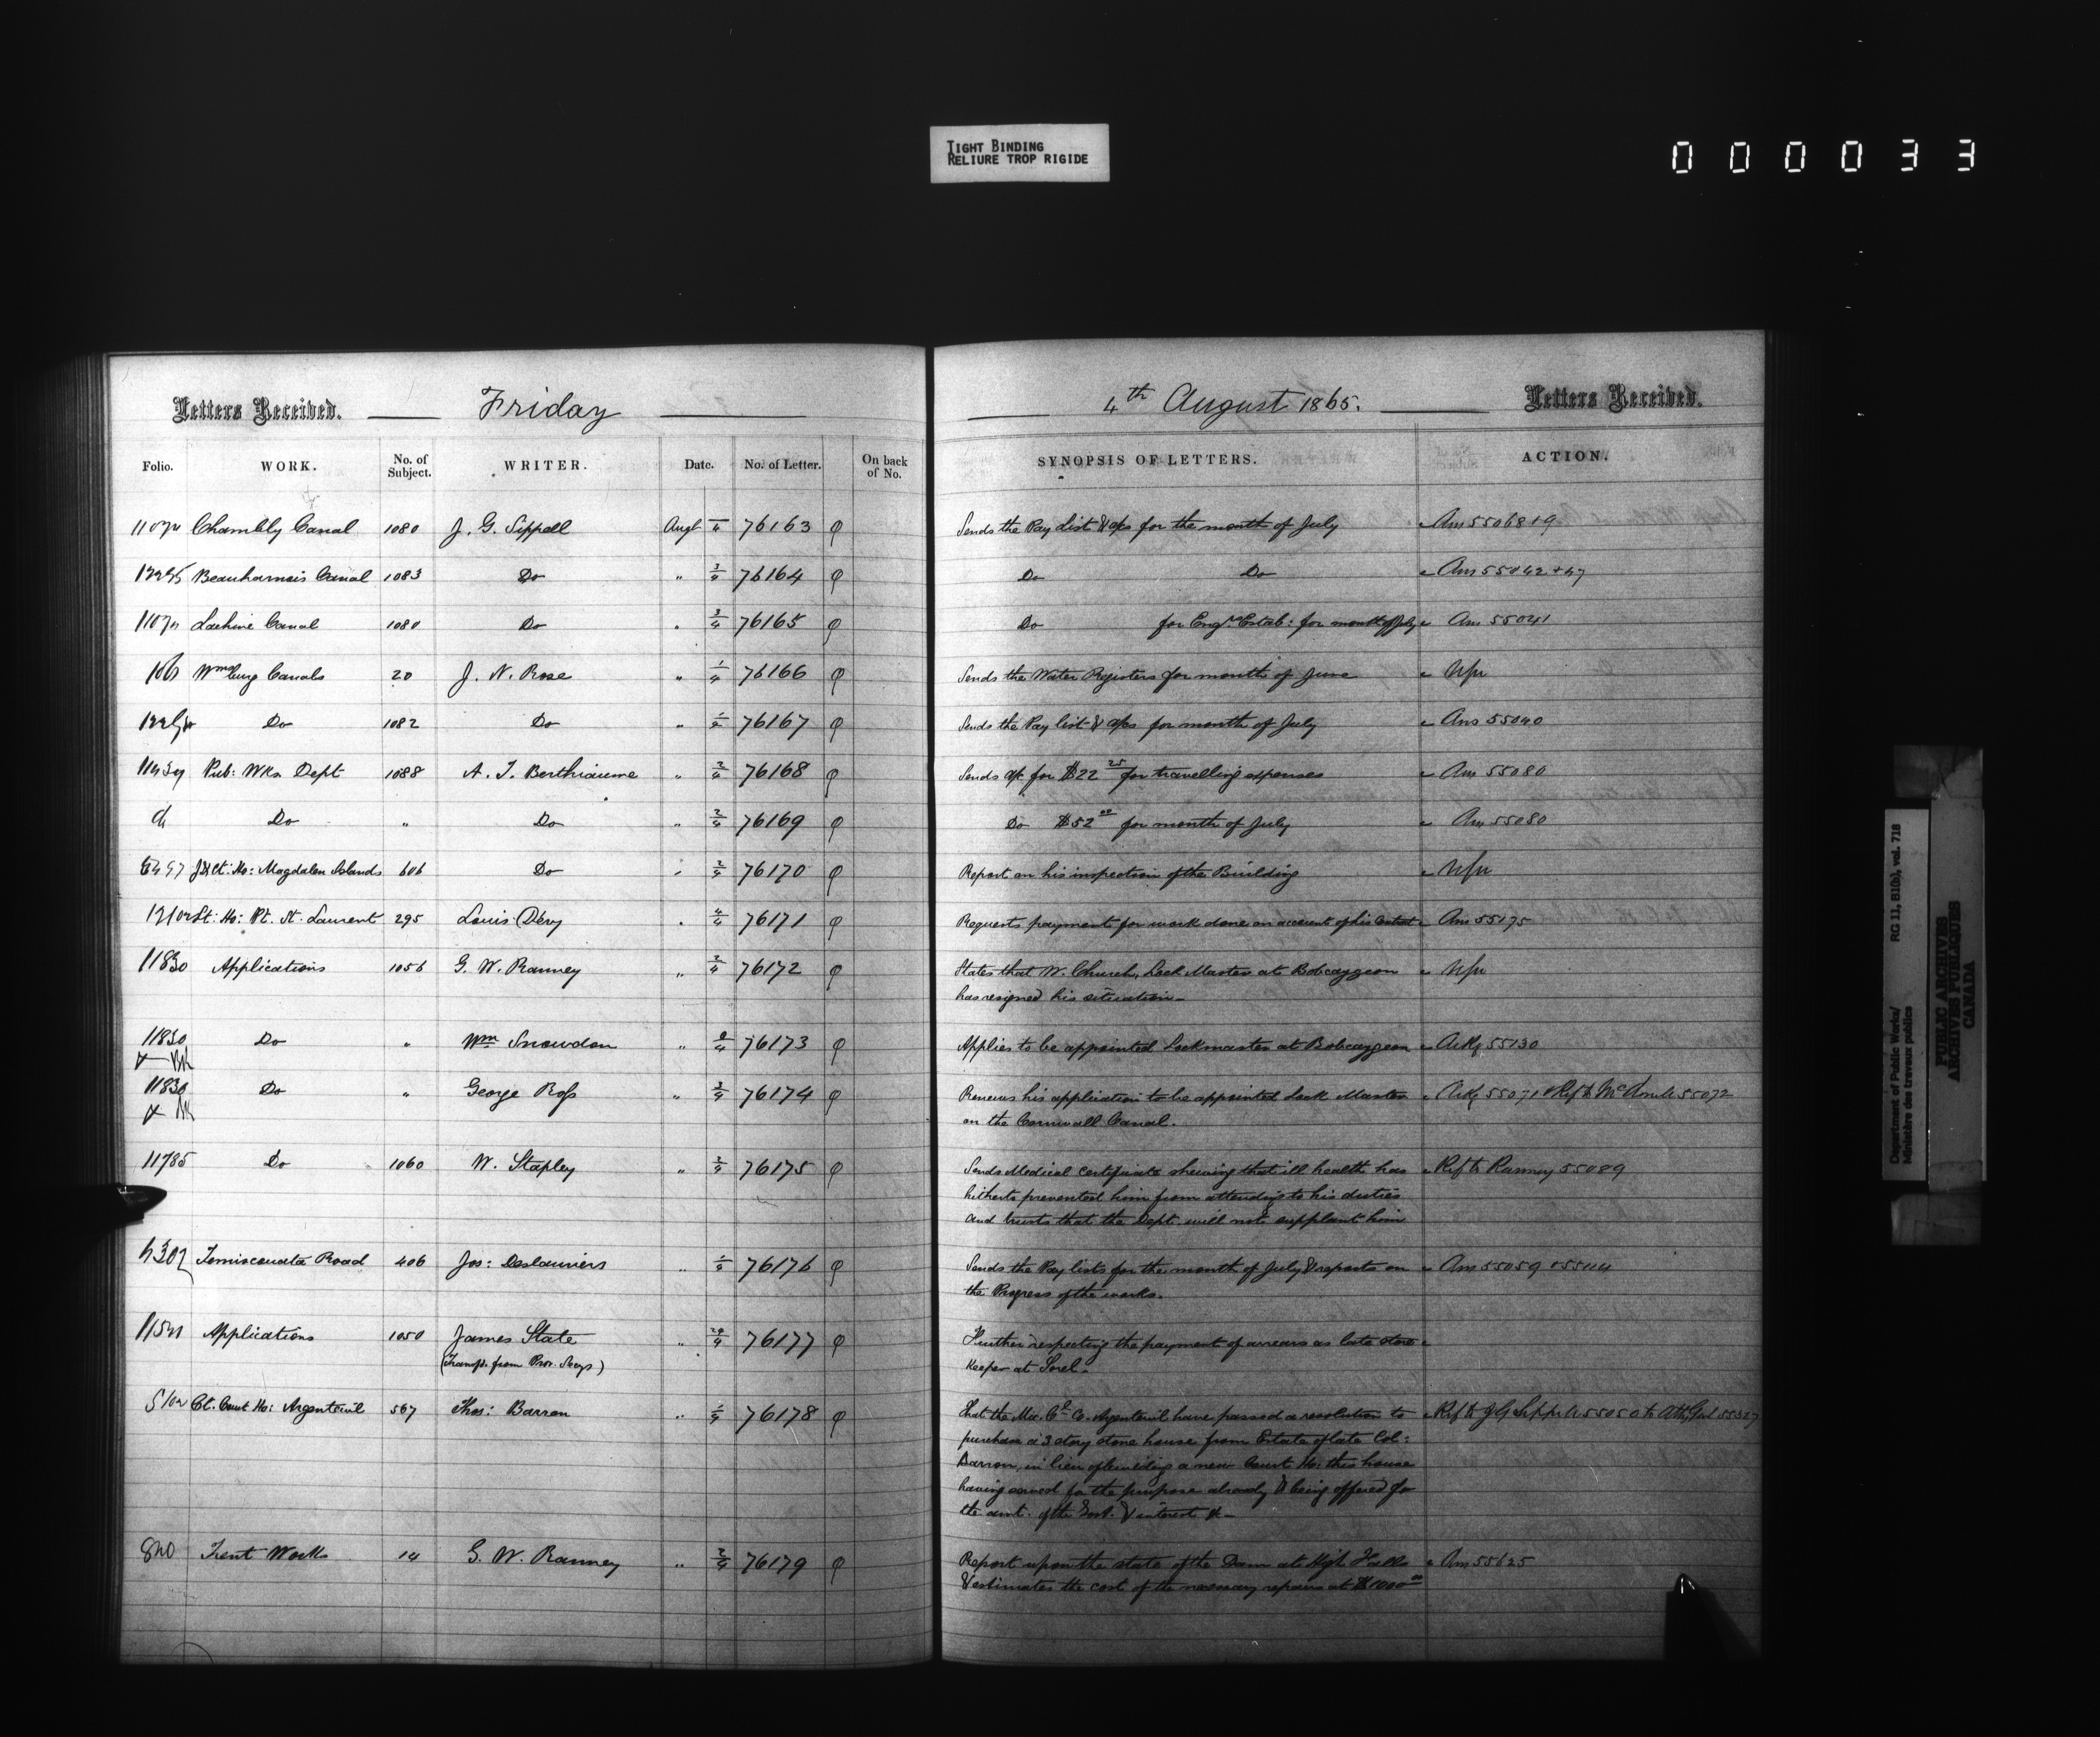 TIGHT BINDING
RELIURE TROP RIGIDE
000033
Letters Received. Friday
Folio. WORK. No. of Subject. WRITER. Date. No. of Letter. On back of No.
Chambly Canal 1080 J. G. Sippell Augt 4 76163
Beauharnois Canal 1083 Do " 3/4 76164
Lachine Canal 1080 Do " 3/4 76165
Wmsburg Canals 20 J. N. Rose " 1/4 76166
Do 1082 Do " 76167
Pub: Wks Dept 1088 A. T. Berthiaume " 2/4 76168
Do " Do " 2/4 76169
J & Ct: Ho: Magdalen Islands 606 Do " 2/4 76170
Lt: Ho: Pt. St. Laurent 295 Louis Déry " 4/4 76171
11830 Applications 1056 G. W. Ranney " 2/4 76172
11830 Do " Wm Snowdon " 76173
11830 Do " George Ross " 3/4 76174
11785 Do 1060 W. Stapley " 3/4 76175
Temiscouata Road 406 Jos: Deslauriers " 1/4 76176
Applications 1050 James State " 76177
(Transf. from Prov. Secy)
Ct. Court Ho: Argenteuil 567 Thos: Barron " 1/4 76178
Trent Works 14 G. W. Ranney " 2/4 76179
4th August 1865. Letters Received.
SYNOPSIS OF LETTERS. ACTION.
Sends the Pay List & a/cs for the month of July Ans 55068+9
Do Do Ans 55042+47
Do for Engrs Estab: for month of July Ans 55041
Sends the Water Registers for month of June Nfu
Sends the Pay list & a/cs for month of July Ans 55040
Sends a/c for $22 25 for travelling expenses Ans 55080
Do $52 00 for month of July Ans 55080
Report on his inspection of the Building Nfu
Requests payment for work done on account of his Contract Ans 55175
States that W. Church, Lock Master at Bobcaygeon Nfu
has resigned his situation
Applies to be appointed Lockmaster at Bobcaygeon Ackg 55130
Renews his application to be appointed Lock Master Ackg 55071 & Ref to 55072
on the Cornwall Canal.
Sends Medical certificate shewing that ill health has Ref to Ranney 55089
hitherto prevented him from attending to his duties
and trusts that the Dept will not supplant him
Sends the Pay lists for the month of July & reports on Ans 55059
the Progress of the works.
Further respecting the payment of arrears as late store
keeper at Sorel
That the Co. Argenteuil have passed a resolution to Ref to J G Sippell 55050
purchase a 3 story stone house from Estate of late Col:
Barron, in lieu of building a new Court Ho: this house
having served for the purpose already & being offered for
the amt. of the & interest &
Report upon the state of the Dam at High Falls Ans 55625
& estimates the cost of the necessary repairs at $1000 00
Department of Public Works/ RG 11, B1(b), vol. 718
Ministère des travaux publics
PUBLIC ARCHIVES
ARCHIVES PUBLIQUES
CANADA